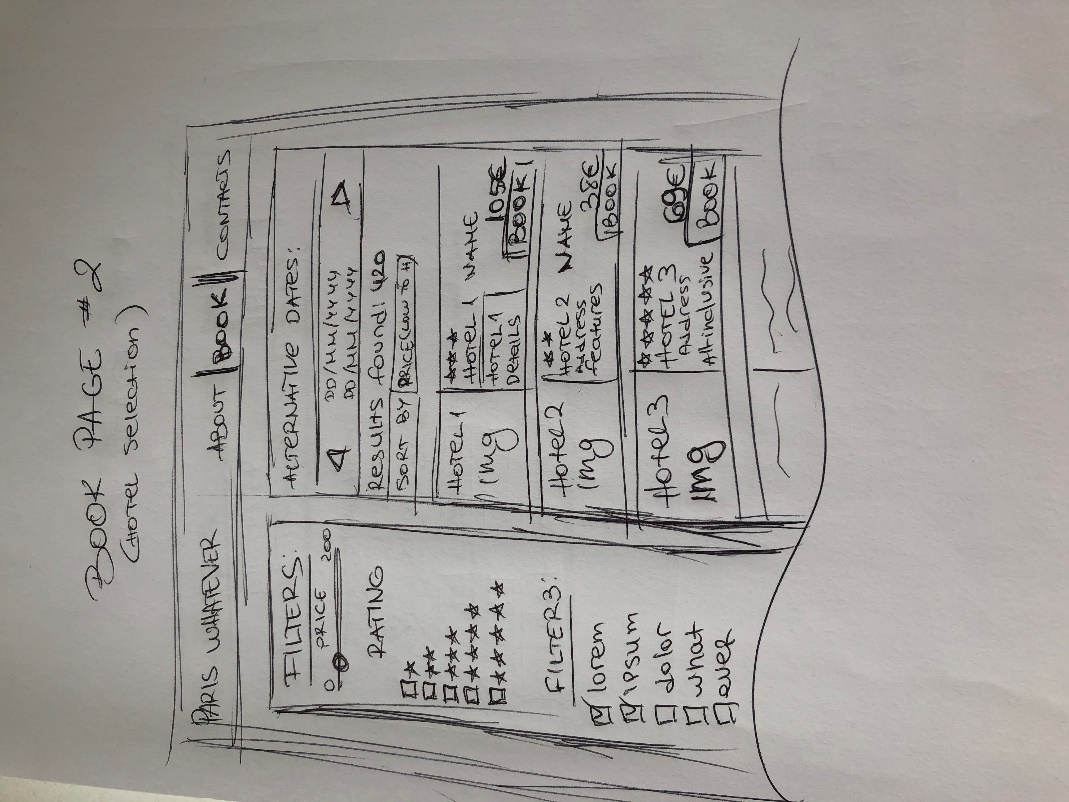 BOOK PAGE #2
(HOTEL Selection)
PARIS WHATEVER ABOUT BOOK CONTACTS
FILTERS:
PRICE
0 200
RATING
★
★★
★★★
★★★★
★★★★★
FILTER3:
lorem
ipsum
dolor
what
ever
ALTERNATIVE DATES:
DD/MM/YYYY
DD/MM/YYYY
Results found: 420
SORT BY PRICE (LOW TO H)
HOTEL1
img
★★★
HOTEL 1 NAME
HOTEL 1
Details
105€
BOOK
HOTEL2
img
★★
HOTEL 2 NAME
Address
features
38€
BOOK
HOTEL3
img
★★★★★
HOTEL 3
Address
All-inclusive
69€
BOOK